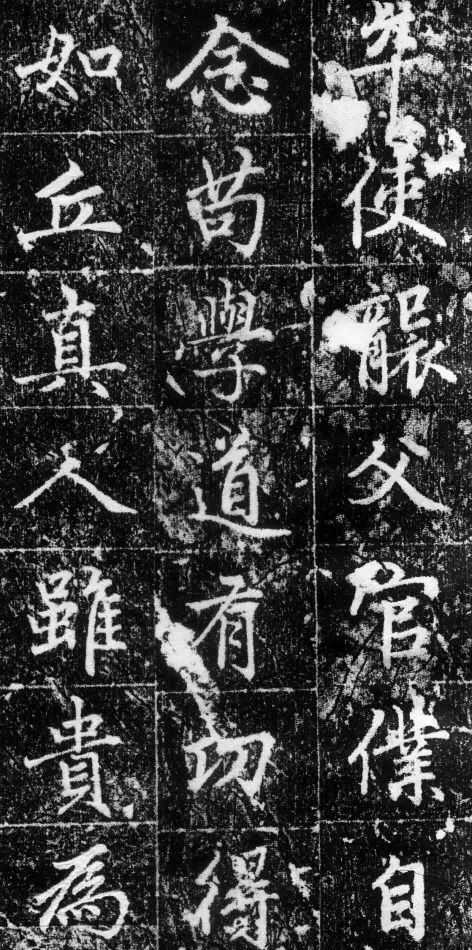 年使襲父官僕自
念苟學道有功得
如丘真人雖貴為